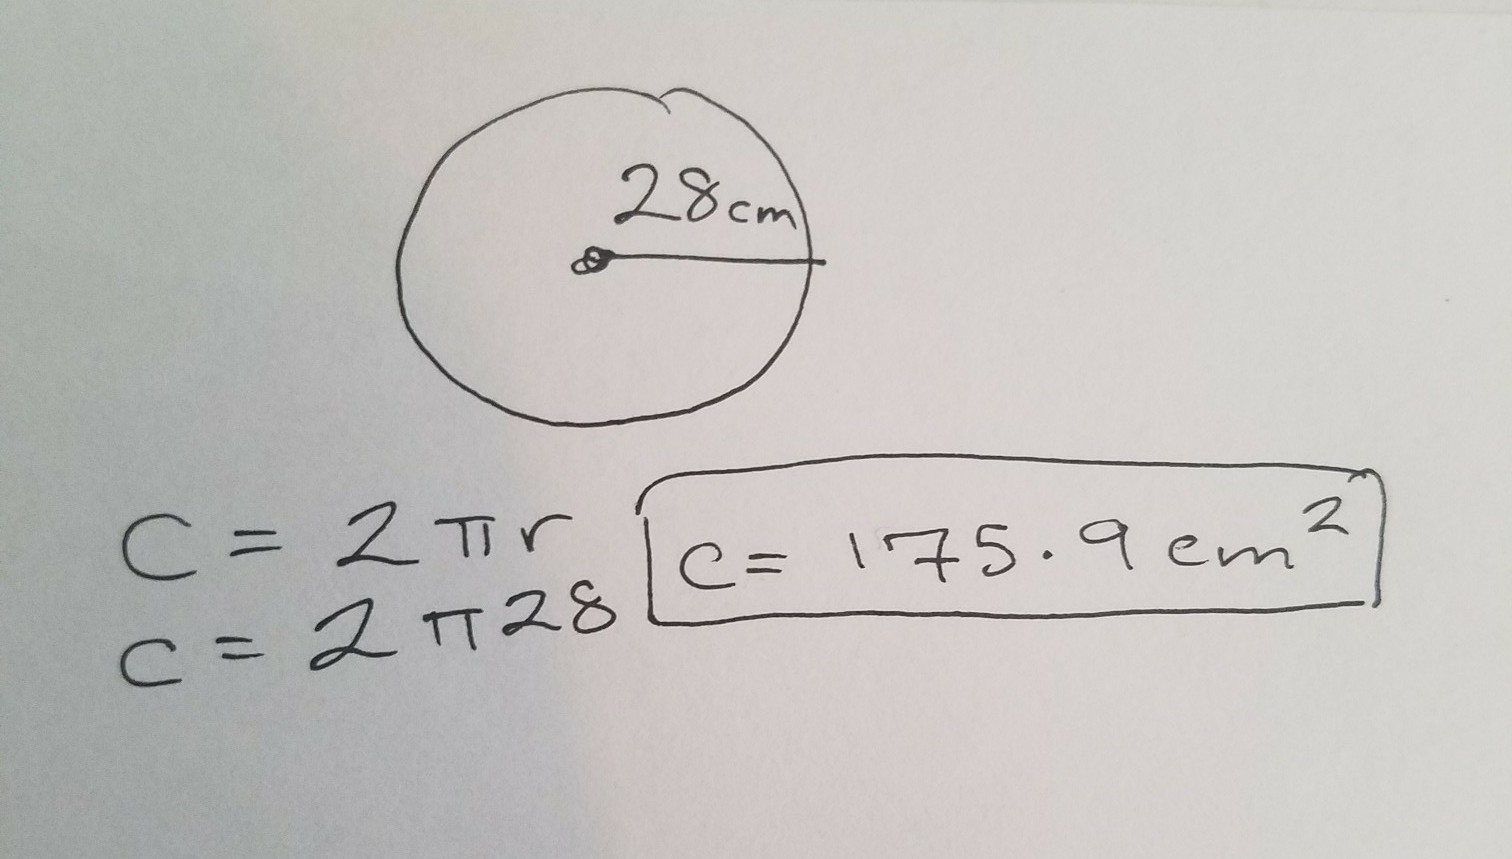 28cm
C = 2πr
C = 2π28
C = 175.9 cm²